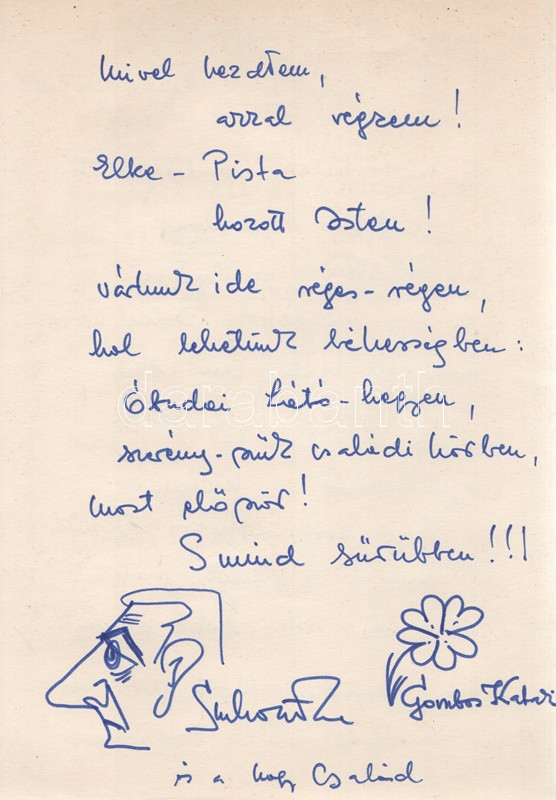 Mivel kezdtem,
azzal végzem!
Elke - Pista
hozott Isten!
vártunk ide réges-régen,
hol lehetünk békességben:
Óbudai Látó-hegyen,
szerény-szűk családi körben,
most először!
S mind sűrűbben!!!
Gombos Katari
is a nagy Család
darabanth